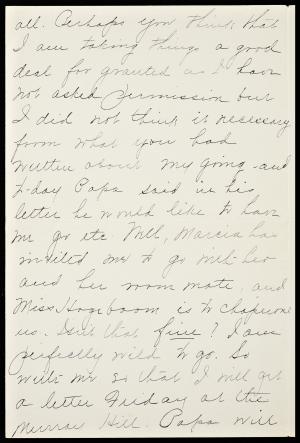 all. Perhaps you think that
I am taking things a good
deal for granted as I have
not asked permission but
I did not think it necessary
from what you had
written about my going - and
to-day Papa said in his
letter he would like to have
me go etc. Well, Marcia has
invited me to go with her
and her room mate, and
Miss Hogeboom is to chaperone
us. Isn't that fine? I am
perfectly wild to go. So
write me so that I will get
a letter Friday at the
Murray Hill. Papa will